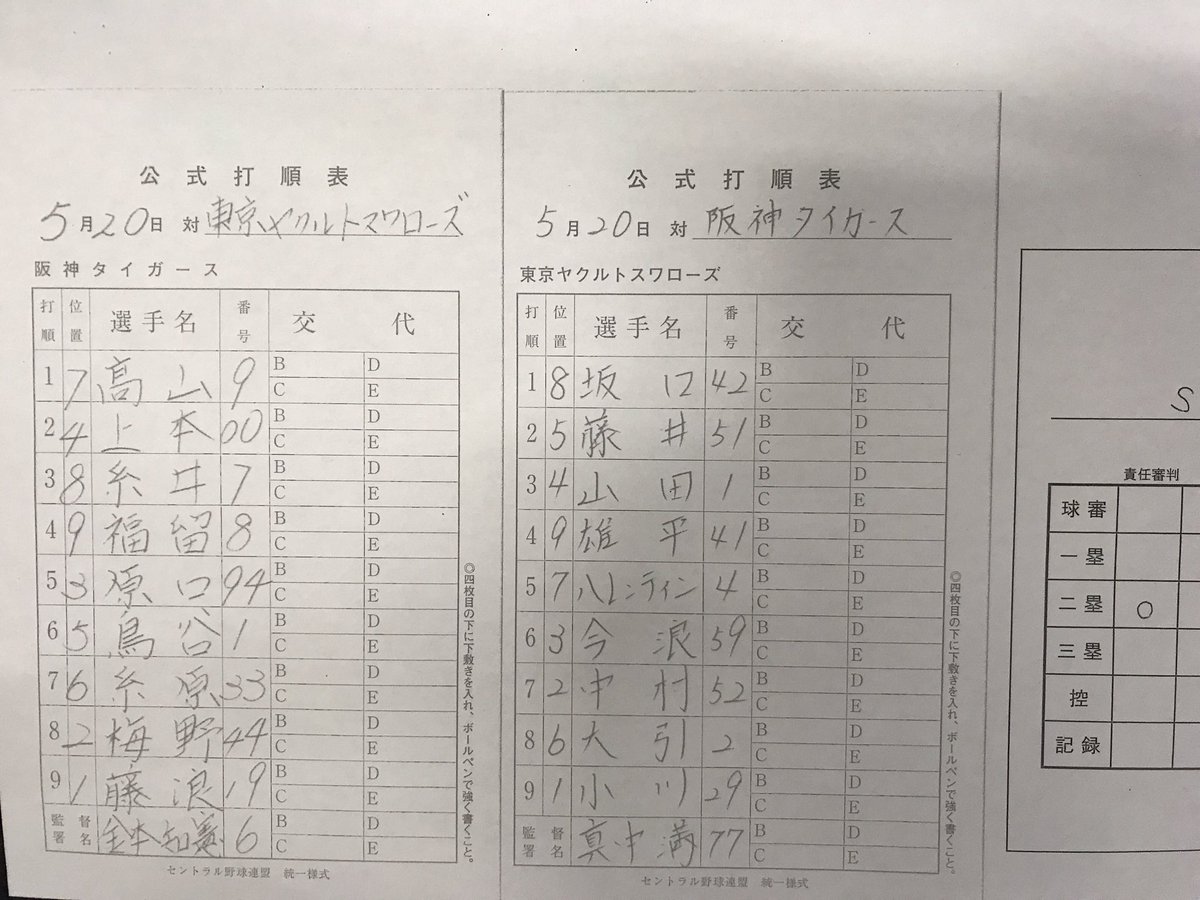 公式打順表
5月20日 対 東京ヤクルトスワローズ
阪神タイガース
打順 位置 選手名 番号 交代
1 7 高山 9 B D C E
2 4 上本 00 B D C E
3 8 糸井 7 B D C E
4 9 福留 8 B D C E
5 3 原口 94 B D C E
6 5 鳥谷 1 B D C E
7 6 糸原 33 B D C E
8 2 梅野 44 B D C E
9 1 藤浪 19 B D C E
監督署名 金本知憲 6 B D C E
セントラル野球連盟 統一様式
◎四枚目の下に下敷きを入れ、ボールペンで強く書くこと。
公式打順表
5月20日 対 阪神タイガース
東京ヤクルトスワローズ
打順 位置 選手名 番号 交代
1 8 坂口 42 B D C E
2 5 藤井 51 B D C E
3 4 山田 1 B D C E
4 9 雄平 41 B D C E
5 7 バレンティン 4 B D C E
6 3 今浪 59 B D C E
7 2 中村 52 B D C E
8 6 大引 2 B D C E
9 1 小川 29 B D C E
監督署名 真中満 77 B D C E
セントラル野球連盟 統一様式
◎四枚目の下に下敷きを入れ、ボールペンで強く書くこと。
S
責任審判
球審
一塁
二塁 ○
三塁
控
記録